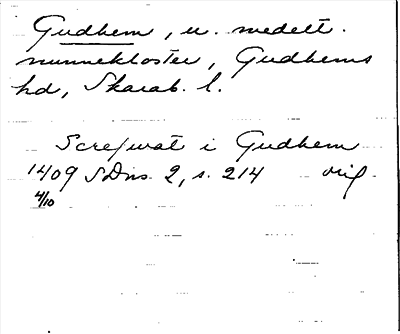 Gudhem, u. medelt.
nunnekloster, Gudhems
hd, Skarab. l.
Screfwat i Gudhem
1409 SDns 2, s. 214 orig.
4/10